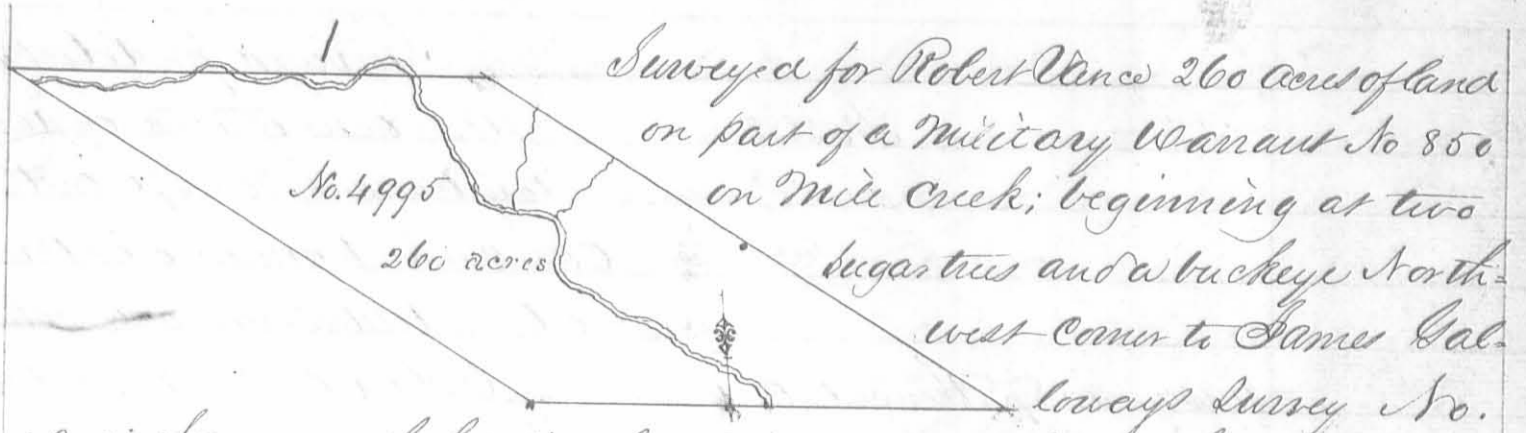 Surveyed for Robert Vance 260 acres of land
on part of a Military Warrant No 850
on Mill Creek; beginning at two
Sugartrees and a buckeye North=
west corner to James Gal=
loways Survey No.
1
No. 4995
260 acres